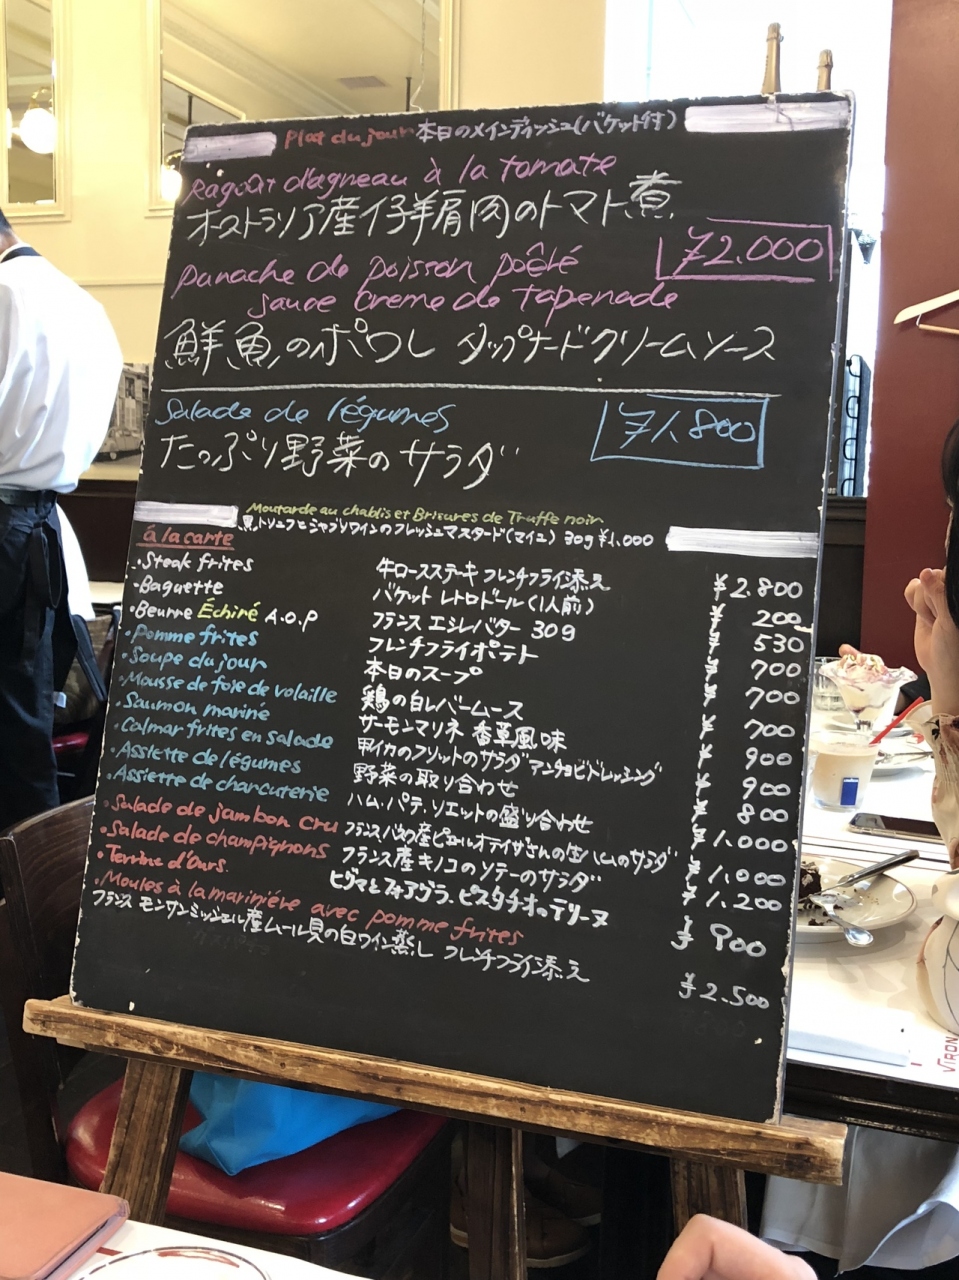 Plat du jour 本日のメインディッシュ(バケット付)
Ragoût d'agneau à la tomate
オーストラリア産仔羊肩肉のトマト煮
¥2.000
panache de poisson poêlé
sauce Creme de tapenade
鮮魚のポワレ タップナードクリームソース
Salade de légumes
¥1.800
たっぷり野菜のサラダ
Moutarde au chablis et Brisures de Truffe noir
黒トリュフとシャブリワインのフレッシュマスタード(マイユ) 30g ¥1,000
à la carte
・Steak frites 牛ロースステーキ フレンチフライ添え ¥2.800
・Baguette バケット レトロドール(1人前) ¥200
・Beurre Échiré A.O.P フランス エシレバター 30g ¥530
・Pomme frites フレンチフライポテト ¥700
・Soupe du jour 本日のスープ ¥700
・Mousse de foie de volaille 鶏の白レバームース ¥700
・Saumon mariné サーモンマリネ 香草風味 ¥900
・Calmar frites en salade 甲イカのフリットのサラダ アンチョビドレッシング ¥900
・Assiette de légumes 野菜の取り合わせ ¥800
・Assiette de charcuterie ハム、パテ、リエットの盛り合わせ ¥1.000
・Salade de jambon cru フランスバスク産ピエール オテイザさんの生ハムのサラダ ¥1.000
・Salade de champignons フランス産キノコのソテーのサラダ ¥1.200
・Terrine d'Ours. ヒグマとフォアグラ、ピスタチオのテリーヌ ¥900
・Moules à la marinière avec pomme frites
フランス モンサンミッシェル産ムール貝の白ワイン蒸し フレンチフライ添え ¥2.500
VIRON